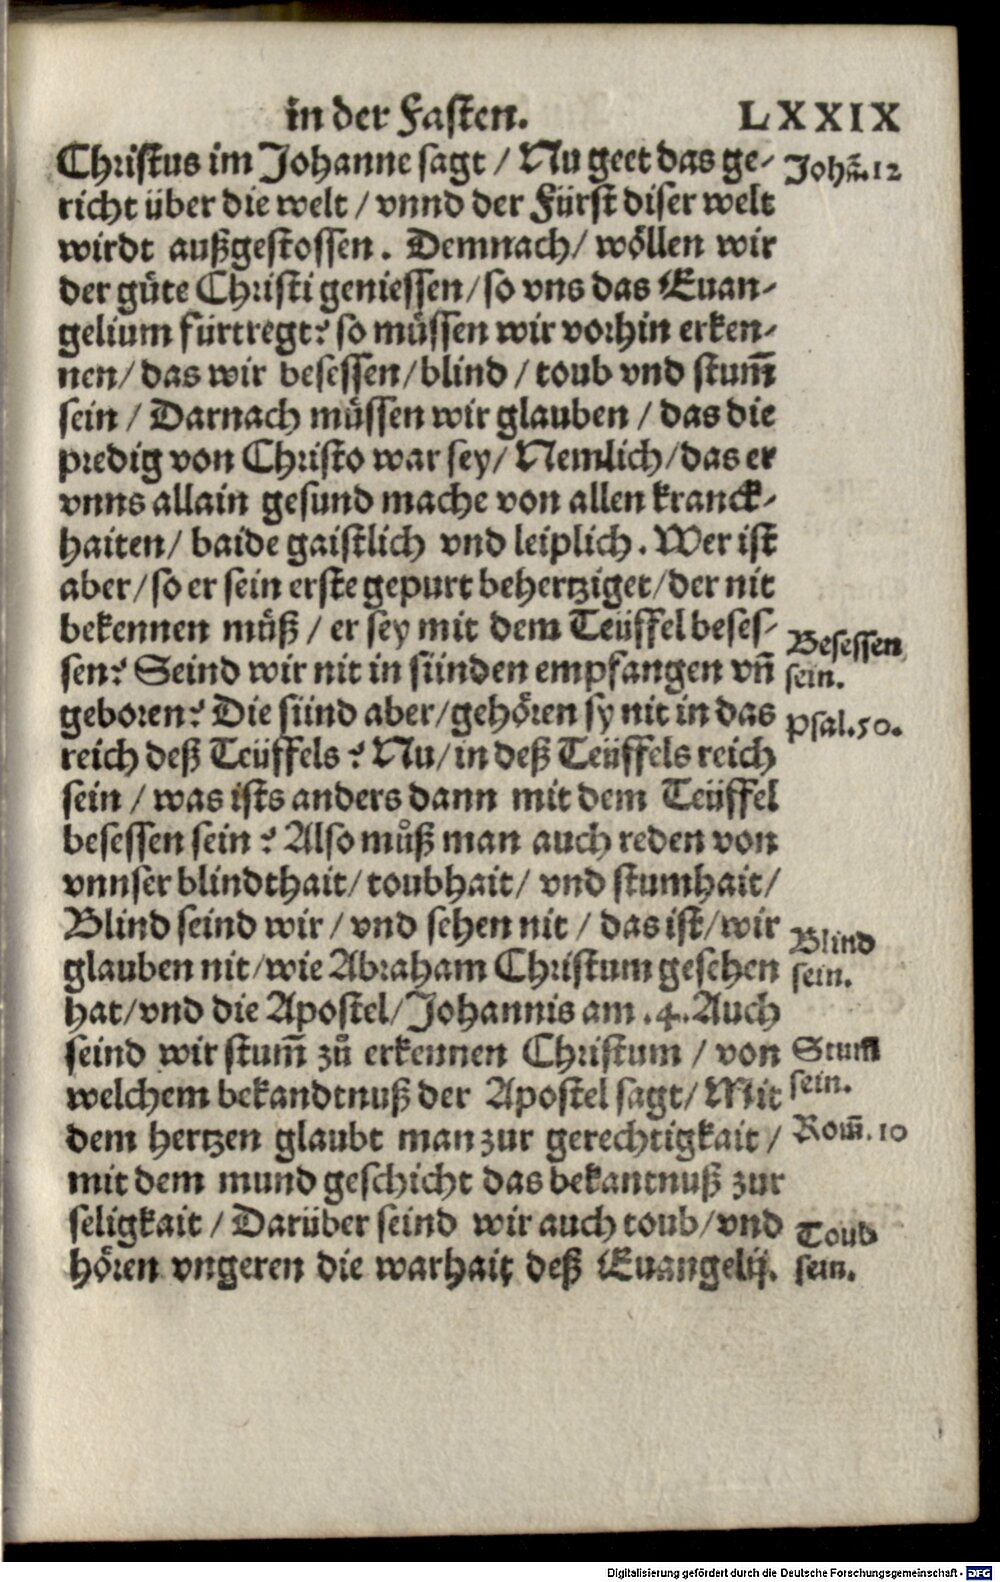 in der Fasten. LXXIX
Christus im Johanne sagt / Nu geet das ge-
Johā.12
richt über die welt / vnnd der Fürst diser welt
wirdt außgestossen. Demnach / wöllen wir
der güte Christi geniessen / so vns das Euan-
gelium fürtregt? so müssen wir vorhin erken-
nen / das wir besessen / blind / toub vnd stum̄
sein / Darnach müssen wir glauben / das die
predig von Christo war sey / Nemlich / das er
vnns allain gesund mache von allen kranck-
haiten / baide gaistlich vnd leiplich. Wer ist
aber / so er sein erste gepurt behertziget / der nit
bekennen müß / er sey mit dem Teüffel beses-
Besessen
sen? Seind wir nit in sünden empfangen vn̄
sein.
geboren? Die sünd aber / gehören sy nit in das
Psal.50.
reich deß Teüffels? Nu / in deß Teüffels reich
sein / was ists anders dann mit dem Teüffel
besessen sein? Also můß man auch reden von
vnnser blindthait / toubhait / vnd stumhait /
Blind seind wir / vnd sehen nit / das ist / wir
Blind
glauben nit / wie Abraham Christum gesehen
sein.
hat / vnd die Apostel / Johannis am .4. Auch
seind wir stum̄ zů erkennen Christum / von
Stum̄
welchem bekandtnuß der Apostel sagt / Mit
sein.
dem hertzen glaubt man zur gerechtigkait /
Rom̄.10
mit dem mund geschicht das bekantnuß zur
seligkait / Darüber seind wir auch toub / vnd
Toub
hören vngeren die warhait deß Euangelij.
sein.
Digitalisierung gefördert durch die Deutsche Forschungsgemeinschaft - DFG